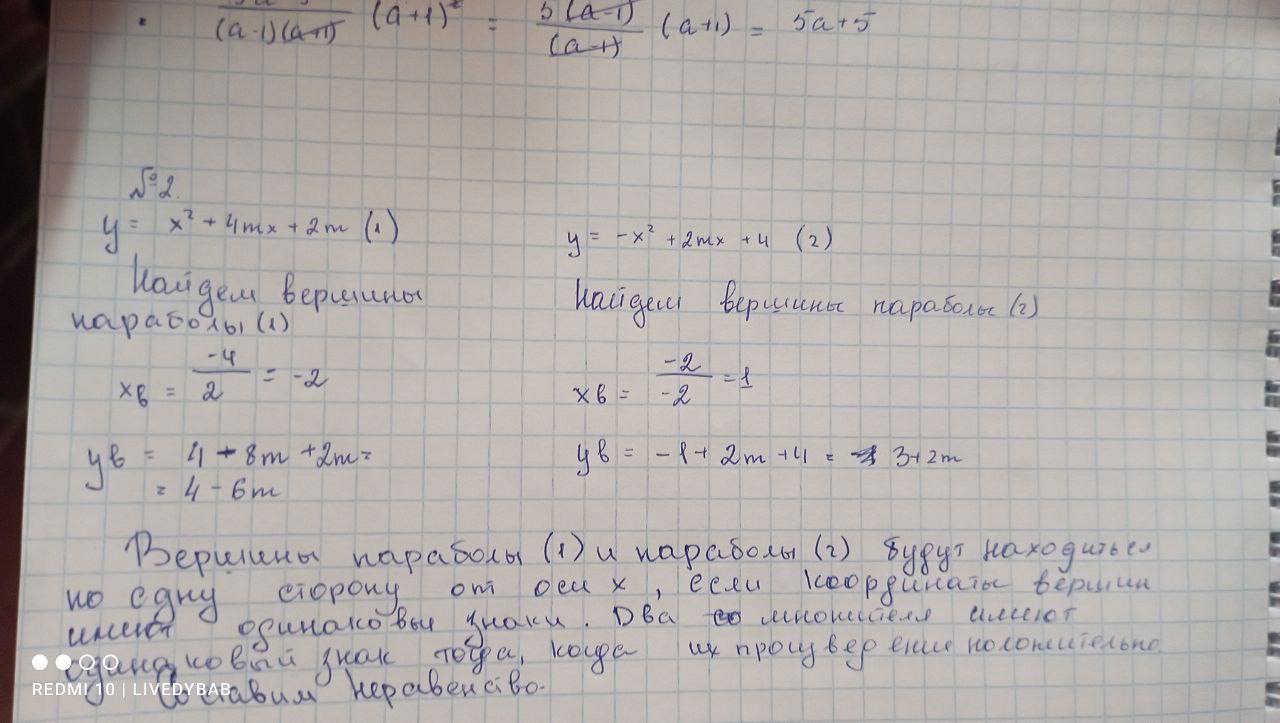 (a-1)(a+1) (a+1)² = 5(a-1) / (a-1) (a+1) = 5a+5
№2.
y = x² + 4mx + 2m (1)
y = -x² + 2mx + 4 (2)
Найдем вершины
параболы (1)
Найдем вершины параболы (2)
xв = -4/2 = -2
xв = -2/-2 = 1
yв = 4 - 8m + 2m =
= 4 - 6m
yв = -1 + 2m + 4 = 3 + 2m
Вершины параболы (1) и параболы (2) будут находиться
по одну сторону от оси x, если координаты вершин
имеют одинаковые знаки. Два множителя имеют
одинаковый знак тогда, когда их произведение положительно
Составим неравенство.
REDMI 10 | LIVEDYBAB